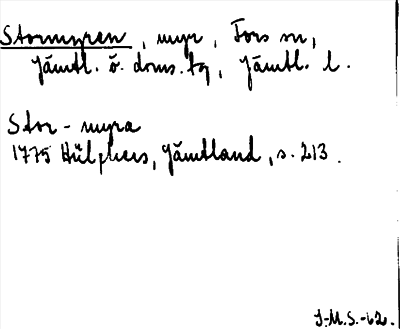 Stormyren, myr, Fors sn,
Jämtl. ö. doms. tg, Jämtl. l.
Stor-myra
1775 Hülphers, Jämtland, s. 213.
J.M.S.-62.